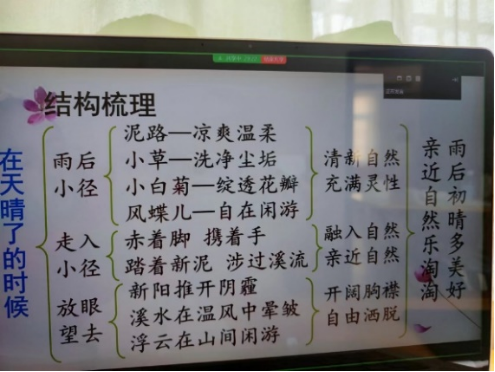 结构梳理
在天晴了的时候
雨后
小径
泥路—凉爽温柔
小草—洗净尘垢
小白菊—绽透花瓣
风蝶儿—自在闲游
清新自然
充满灵性
走入
小径
赤着脚 携着手
踏着新泥 涉过溪流
融入自然
亲近自然
放眼
望去
新阳推开阴霾
溪水在温风中晕皱
浮云在山间闲游
开阔胸襟
自由洒脱
雨后初晴多美好
亲近自然乐淘淘